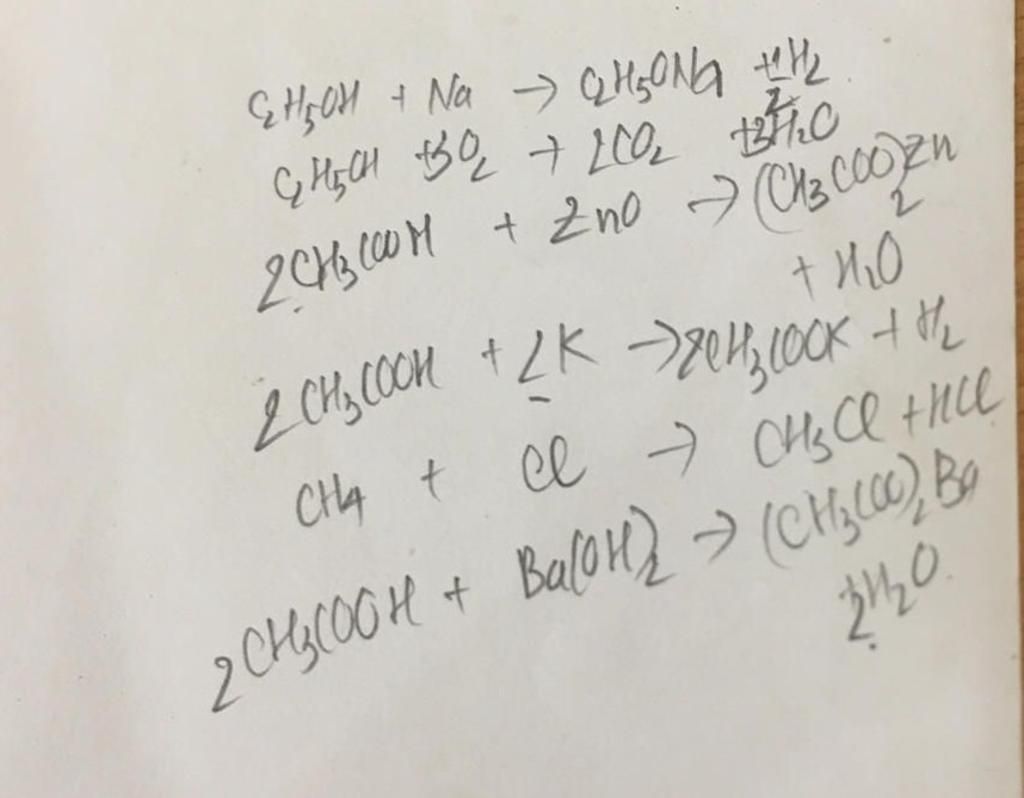 C2H5OH + Na → C2H5ONa + 1/2 H2
C2H5OH + 3O2 → 2CO2 + 3H2O
2CH3COOH + ZnO → (CH3COO)2Zn
+ H2O
2CH3COOH + 2K → 2CH3COOK + H2
CH4 + Cl → CH3Cl + HCl
2CH3COOH + Ba(OH)2 → (CH3COO)2Ba
+ 2H2O